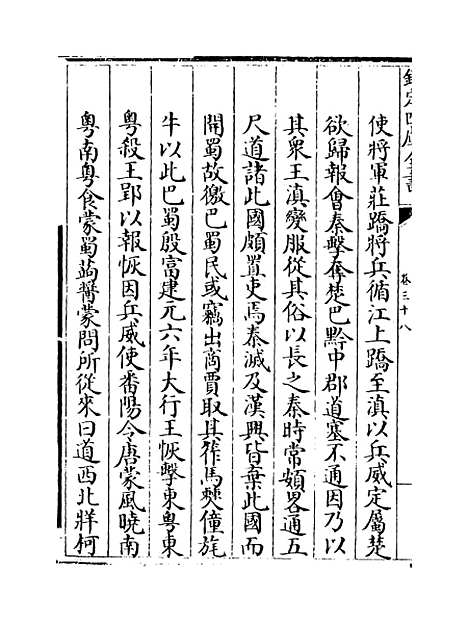 欽定四庫全書
卷三十八
使將軍莊蹻將兵循江上蹻至滇以兵威定屬楚
欲歸報會秦擊奪楚巴黔中郡道塞不通因乃以
其衆王滇變服從其俗以長之秦時常頞畧通五
尺道諸此國頗置吏焉秦滅及漢興皆棄此國而
開蜀故徼巴蜀民或竊出商賈取其筰馬僰僮旄
牛以此巴蜀殷富建元六年大行王恢擊東粤東
粤殺王郢以報恢因兵威使番陽令唐蒙風曉南
粤南粤食蒙蜀蒟醬蒙問所從來曰道西北牂柯